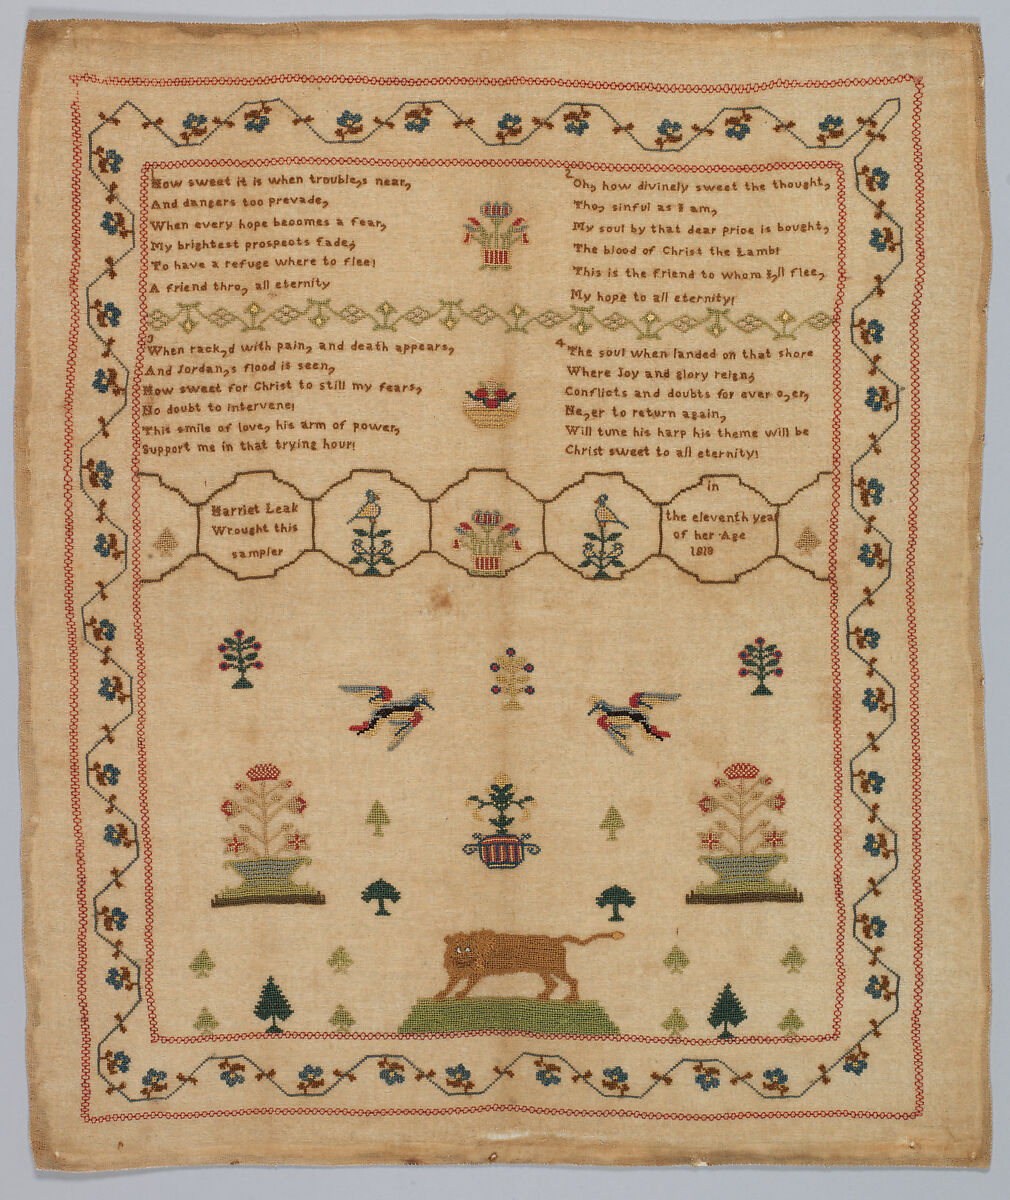 How sweet it is when trouble,s near,
And dangers too prevade,
When every hope becomes a fear,
My brightest prospects fade;
To have a refuge where to flee!
A friend thro, all eternity
2
Oh, how divinely sweet the thought,
Tho, sinful as I am,
My soul by that dear price is bought,
The blood of Christ the Lamb!
This is the friend to whom I,ll flee,
My hope to all eternity!
3
When rack,d with pain, and death appears,
And Jordan,s flood is seen,
How sweet for Christ to still my fears,
No doubt to intervene!
This smile of love, his arm of power,
Support me in that trying hour!
4
The soul when landed on that shore
Where Joy and glory reign;
Conflicts and doubts for ever o,er,
Ne,er to return again,
Will tune his harp his theme will be
Christ sweet to all eternity!
Harriet Leak
Wrought this
sampler
in
the eleventh year
of her Age
1818